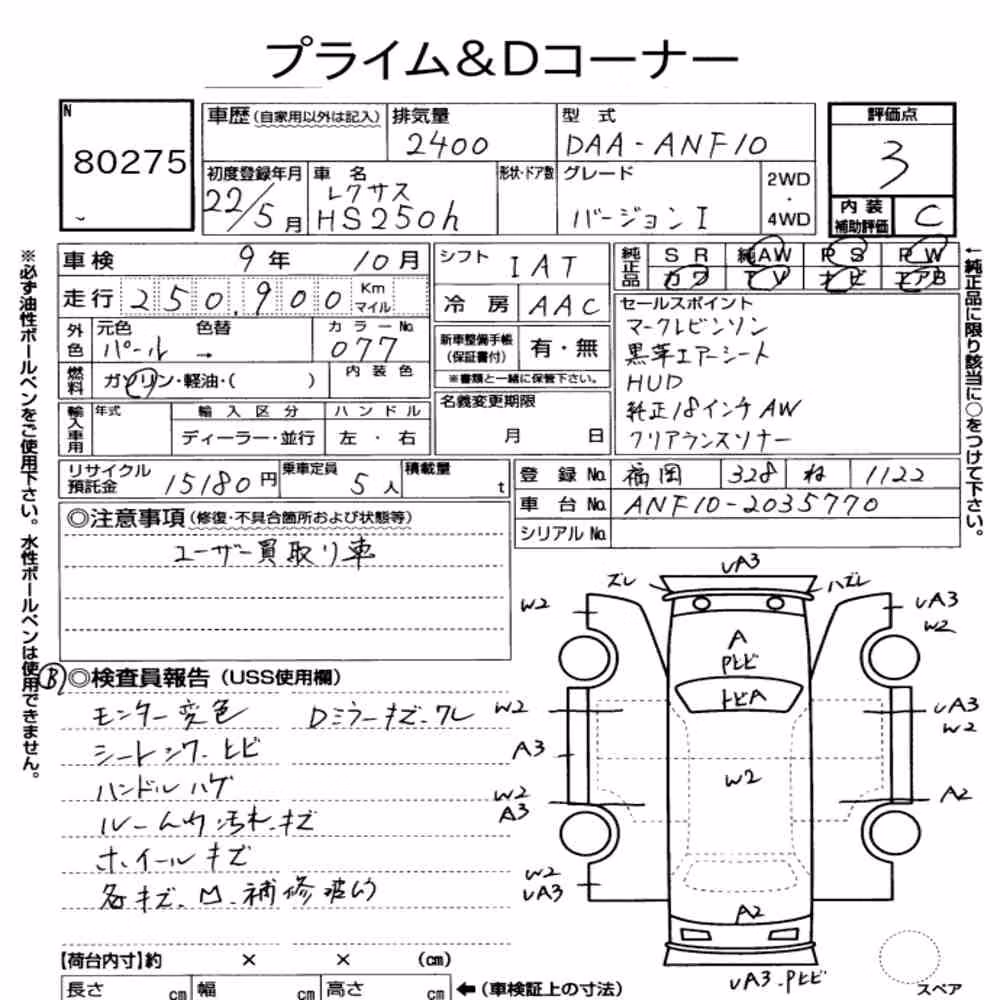 プライム&Dコーナー
N
80275
車歴(自家用以外は記入) 排気量 2400 型式 DAA-ANF10
評価点 3
初度登録年月 22/5月 車名 レクサス HS250h 形状・ドア数 グレード バージョンI 2WD・4WD
内装補助評価 C
車検 9年 10月 シフト IAT
純正品 SR 純AW PS PW
カワ TV ナビ エアB
走行 250,900 Km マイル 冷房 AAC
セールスポイント
マークレビンソン
黒革エアーシート
HUD
純正18インチAW
クリアランスソナー
外色 元色 パール 色替 → カラーNo. 077
新車整備手帳(保証書付) 有・無
※書類と一緒に保管下さい。
燃料 ガソリン・軽油・( ) 内装色
輸入車用 年式 輸入区分 ハンドル
ディーラー・並行 左・右
名義変更期限
月 日
リサイクル預託金 15180円 乗車定員 5人 積載量 t
登録No. 福岡 328 ね 1122
車台No. ANF10-2035770
シリアルNo.
※必ず油性ボールペンをご使用下さい。水性ボールペンは使用できません。
↑純正品に限り該当に○をつけて下さい。
◎注意事項(修復・不具合箇所および状態等)
ユーザー買取り車
B ◎検査員報告(USS使用欄)
モニター変色 Dミラーキズ、ワレ
シートシワ、ヒビ
ハンドルハゲ
ルーム内汚れ、キズ
ホイールキズ
各キズ、凹、補修波り
UA3
ズレ ハズレ
W2 UA3
W2
A
Pヒビ
トビA
W2 UA3
W2
A3
W2
W2 A2
A3
W2
UA3
A2
UA3、Pヒビ
スペア
【荷台内寸】約 × × (cm)
長さ cm 幅 cm 高さ cm ←(車検証上の寸法)